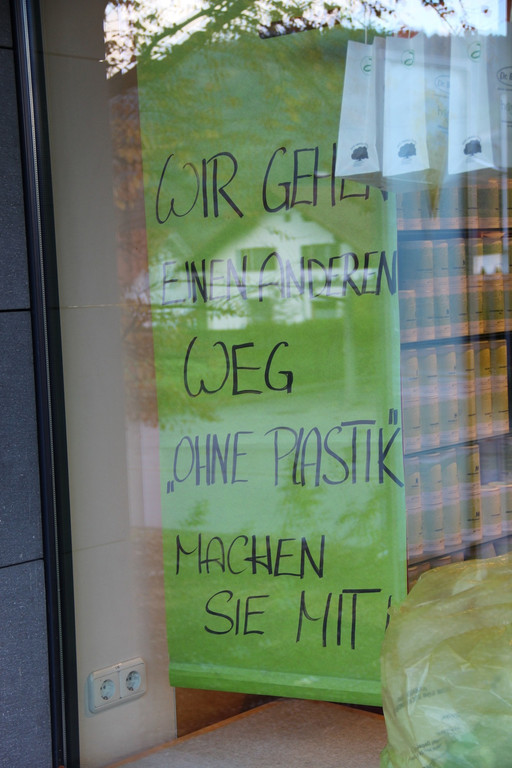 WIR GEHEN
EINEN ANDEREN
WEG
„OHNE PLASTIK"
MACHEN
SIE MIT!